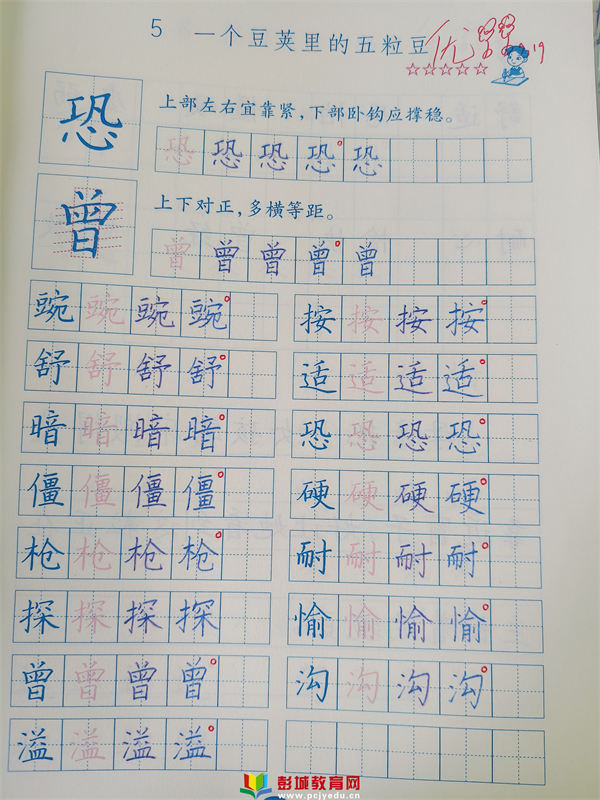 5 一个豆荚里的五粒豆 优
19
☆☆☆☆☆
恐
上部左右宜靠紧,下部卧钩应撑稳。
恐 恐 恐 恐 恐
曾
上下对正,多横等距。
曾 曾 曾 曾 曾
豌 豌 豌 豌 按 按 按 按
舒 舒 舒 舒 适 适 适 适
暗 暗 暗 暗 恐 恐 恐 恐
僵 僵 僵 僵 硬 硬 硬 硬
枪 枪 枪 枪 耐 耐 耐 耐
探 探 探 探 愉 愉 愉 愉
曾 曾 曾 曾 沟 沟 沟 沟
溢 溢 溢 溢
彭城教育网
www.pcjyedu.cn